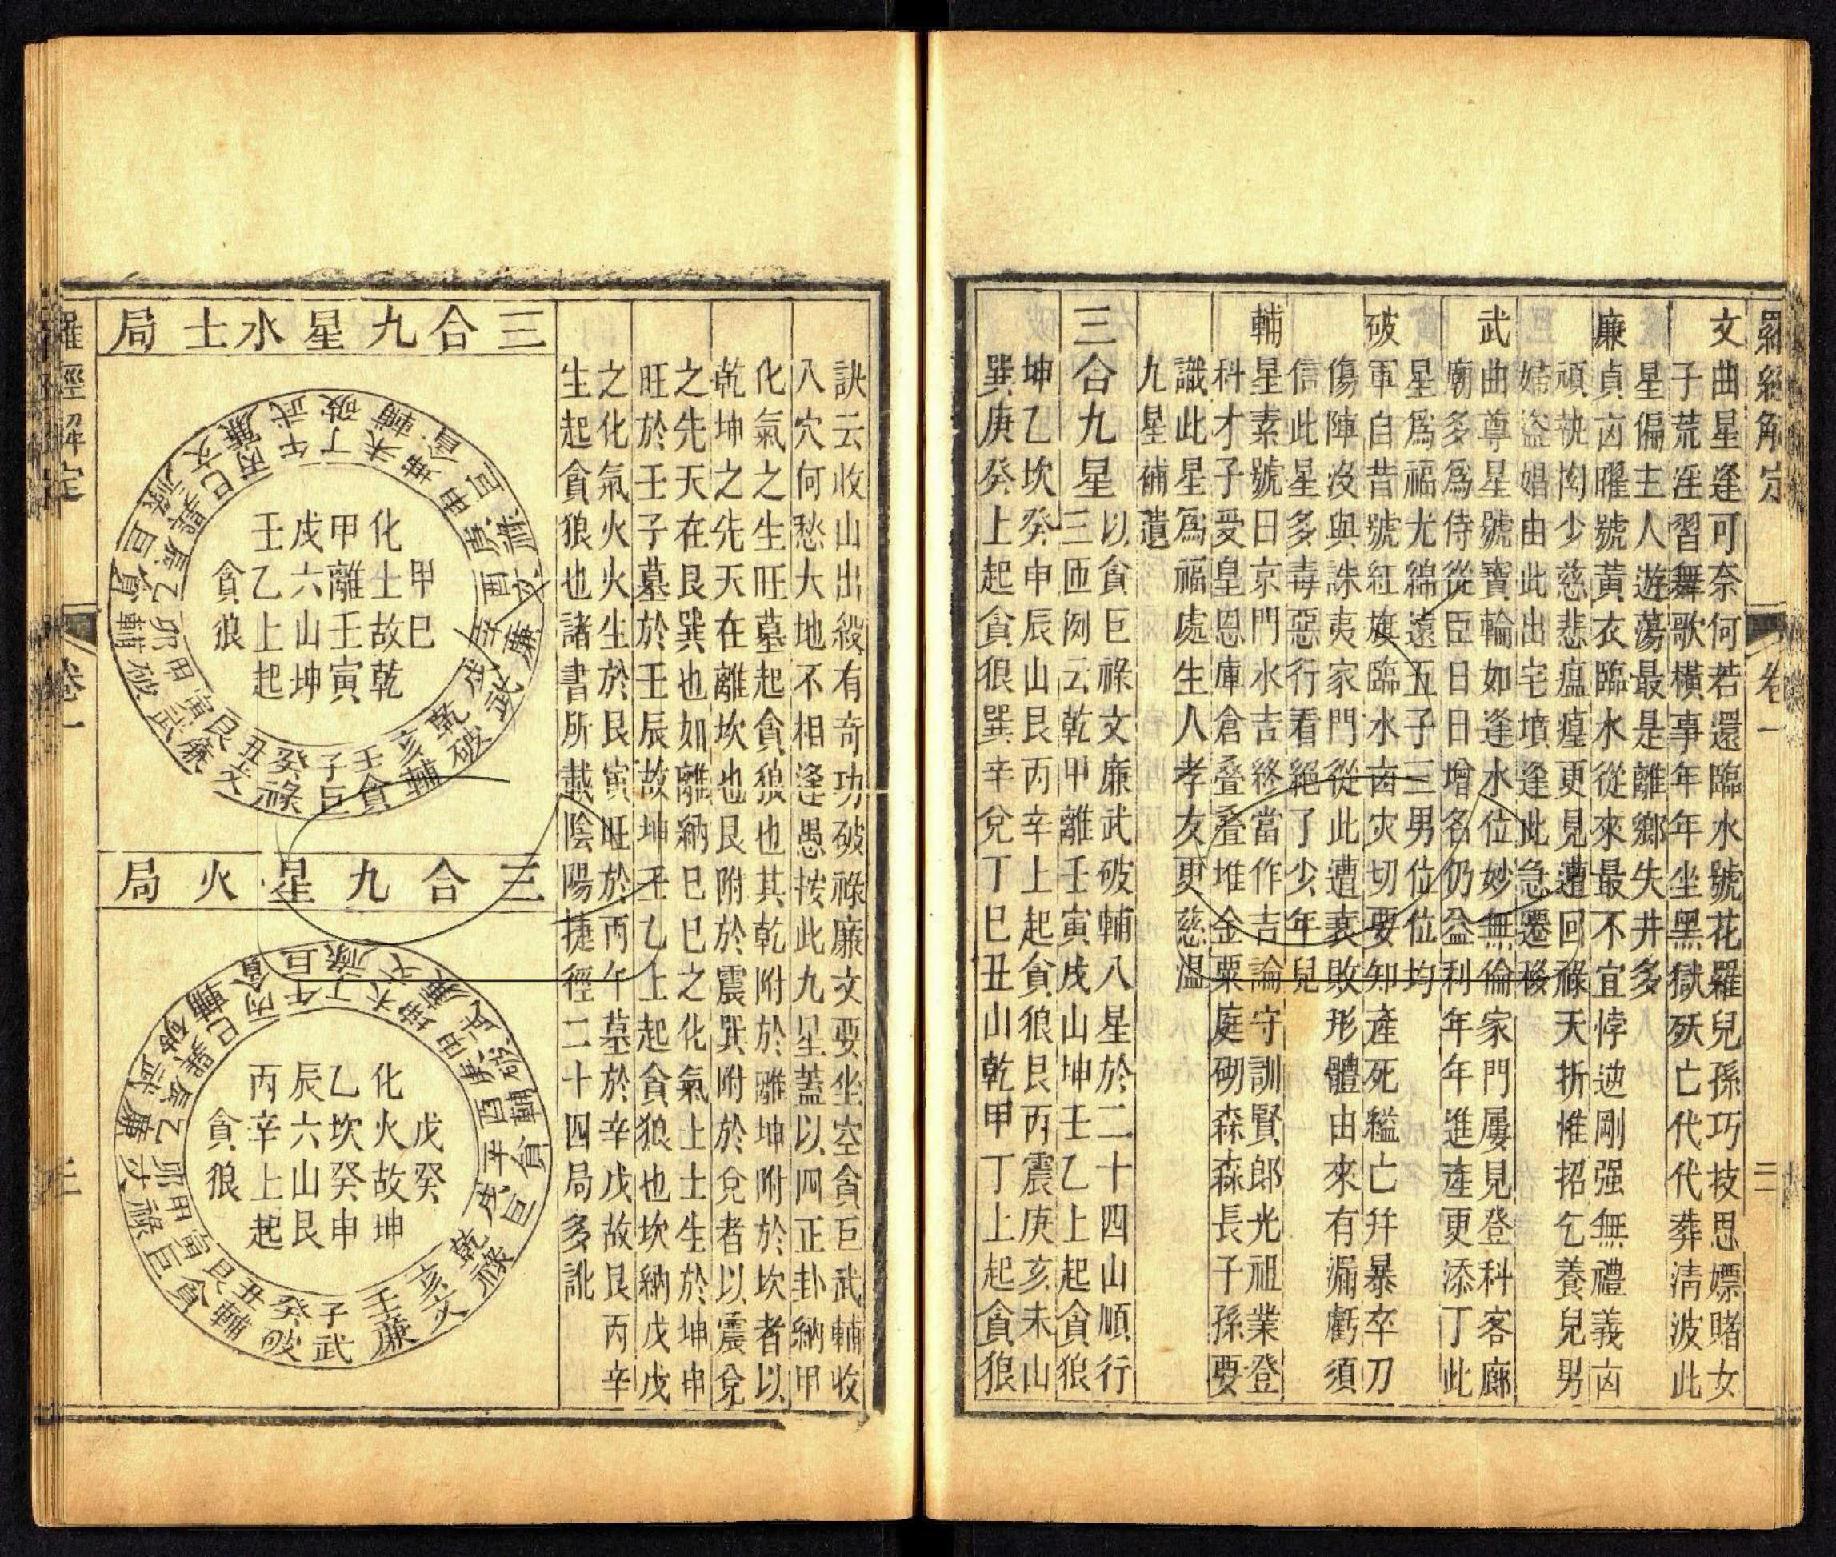 羅經解定
卷一
文曲星逢可奈何若還臨水號花羅兒孫巧技思嫖賭女
子荒淫習舞歌橫事年年坐黑獄殀亡代代葬清波此
星偏主人遊蕩最是離鄉失井多
廉貞凶曜號黃衣臨水從來最不宜悖逆剛强無禮義凶
頑執拗少慈悲瘟㾮更見遭回祿夭折惟招乞養兒男
婦盜娼由此出宅墳逢此急遷移
武曲尊星號寶輪如逢水位妙無倫家門屢見登科客廊
廟多爲侍從臣日日增名仍益利年年進產更添丁此
星爲福光綿遠五子三男位位均
破軍自昔號紅旗臨水凶灾切要知產死縊亡并暴卒刀
傷陣沒與誅夷家門從此遭衰敗形體由來有漏虧須
信此星多毒惡行看絕了少年兒
輔星素號日京門水吉終當作吉論守訓賢郎光祖業登
科才子受皇恩庫倉叠叠堆金粟庭砌森森長子孫要
識此星爲福處生人孝友更慈溫
九星補遺
三合九星以貪巨祿文廉武破輔八星於二十四山順行
三匝例云乾甲離壬寅戌山坤壬乙上起貪狼
坤乙坎癸申辰山艮丙辛上起貪狼艮丙震庚亥未山
巽庚癸上起貪狼巽辛兌丁巳丑山乾甲丁上起貪狼
訣云收山出殺有奇功破祿廉文要坐空貪巨武輔收
八穴何愁大地不相逢愚按此九星蓋以四正卦納甲
化氣之生旺墓起貪狼也其乾附於離坤附於坎者以
乾坤之先天在離坎也艮附於震巽附於兌者以震兌
之先天在艮巽也如離納巳巳之化氣土土生於坤申
旺於壬子墓於壬辰故坤壬乙上起貪狼也坎納戊戊
之化氣火火生於艮寅旺於丙午墓於辛戌故艮丙辛
生起貪狼也諸書所載陰陽捷徑二十四局多訛
三合九星水土局
甲巳
化土故乾
甲離壬寅
戌六山坤
壬乙上起
貪狼
子癸丑艮寅甲卯乙辰巽巳丙午丁未坤申庚酉辛戌乾亥壬
巨祿文廉武破輔貪巨祿文廉武破輔貪巨祿文廉武破輔貪
三合九星火局
戊癸
化火故坤
乙坎癸申
辰六山艮
丙辛上起
貪狼
子癸丑艮寅甲卯乙辰巽巳丙午丁未坤申庚酉辛戌乾亥壬
武破輔貪巨祿文廉武破輔貪巨祿文廉武破輔貪巨祿文廉
卷一